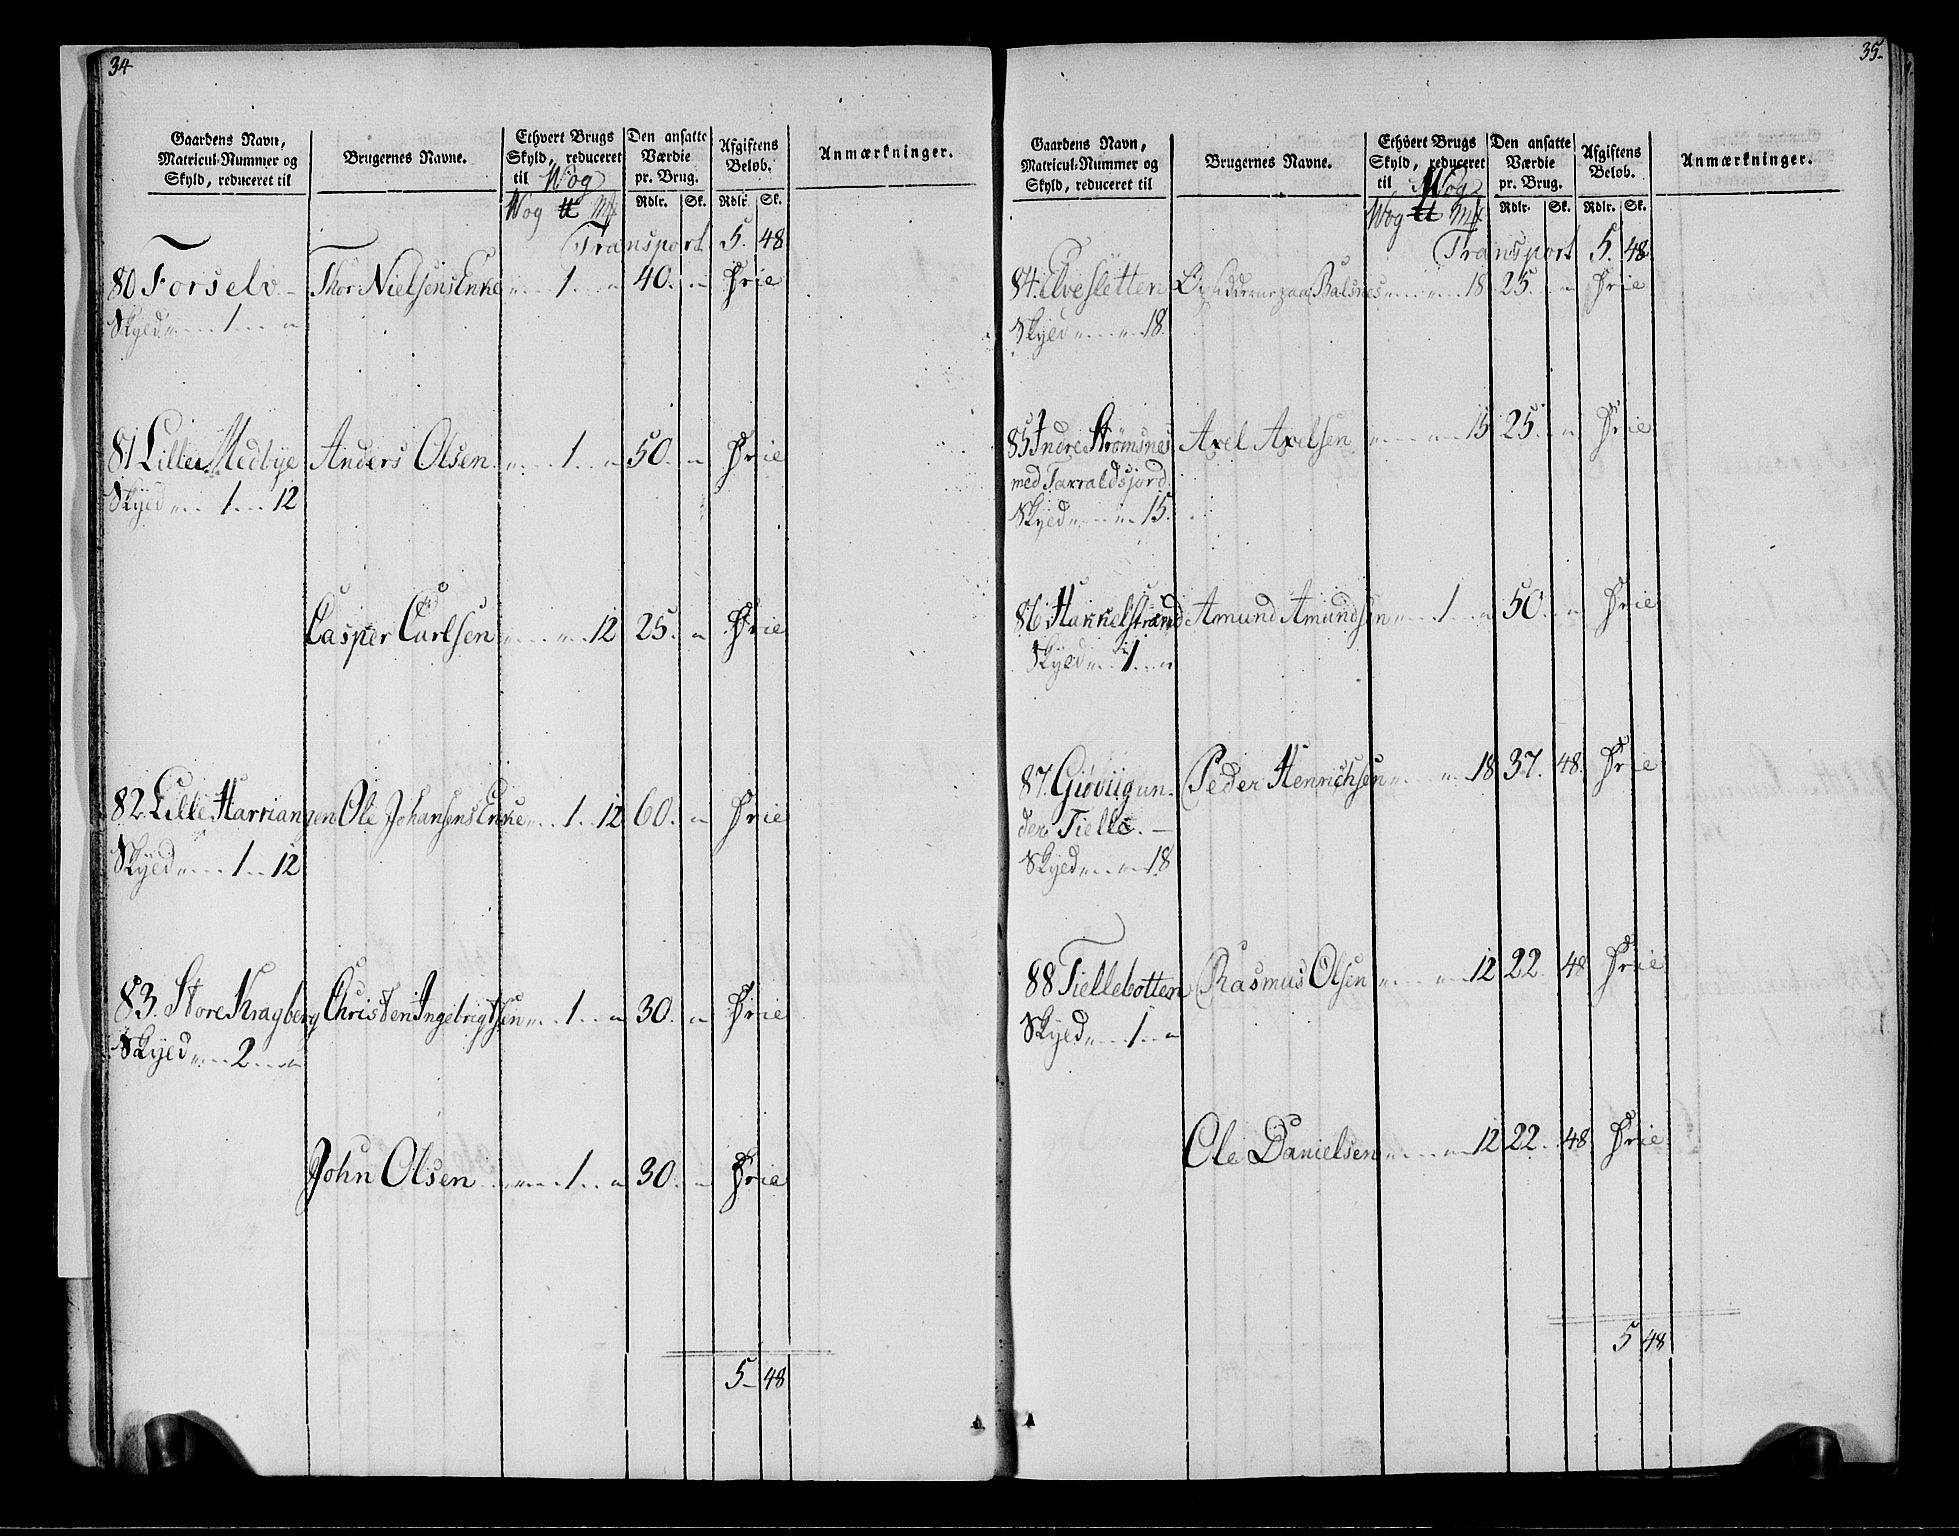 34
Gaardens Navn, Matricul-Nummer og Skyld, reduceret til
Brugernes Navne.
Ethvert Brugs Skyld, reduceret til Wog
Wog ℔ Mk
Den ansatte Værdie pr. Brug.
Rdlr. Sk.
Afgiftens Beløb.
Rdlr. Sk.
Anmærkninger.
Transport 5. 48
80 Forselv Thor Nielsens Enke „ 1 „ 40. „ Frie
Skyld „ 1 „
81 Lille Medbye Anders Olsen „ 1 „ 50. „ Frie
Skyld „ 1 12
Casper Carlsen „ „ 12 25. „ Frie
82. Lille Harriangen Ole Johansens Enke „ 1 12 60. „ Frie
Skyld „ 1 12
83. Store Kragberg Christen Ingebrigtsen „ 1 „ 30. „ Frie
Skyld „ 2 „
John Olsen „ 1 „ 30. „ Frie
5 48
35
Gaardens Navn, Matricul-Nummer og Skyld, reduceret til
Brugernes Navne.
Ethvert Brugs Skyld, reduceret til Wog
Wog ℔ Mk
Den ansatte Værdie pr. Brug.
Rdlr. Sk.
Afgiftens Beløb.
Rdlr. Sk.
Anmærkninger.
Transport 5. 48
84. Elvesletten Opsidderne paa Balsnes „ „ 18 25. „ Frie
Skyld „ „ 18.
85 Indre Strømsnes Axel Axelsen „ „ 15 25. „ Frie
med Tarraldsjord
Skyld „ „ 15.
86 Hankelstrand Amund Amundsen „ 1 „ 50. „ Frie
Skyld „ 1 „
87. Giøviig un- Peder Henrichsen „ „ 18 37. 48. Frie
der Tielle.
Skyld „ „ 18
88 Tiellebotten Rasmus Olsen „ „ 12 22. 48 Frie
Skyld „ 1 „
Ole Danielsen „ „ 12 22. 48 Frie
5 48